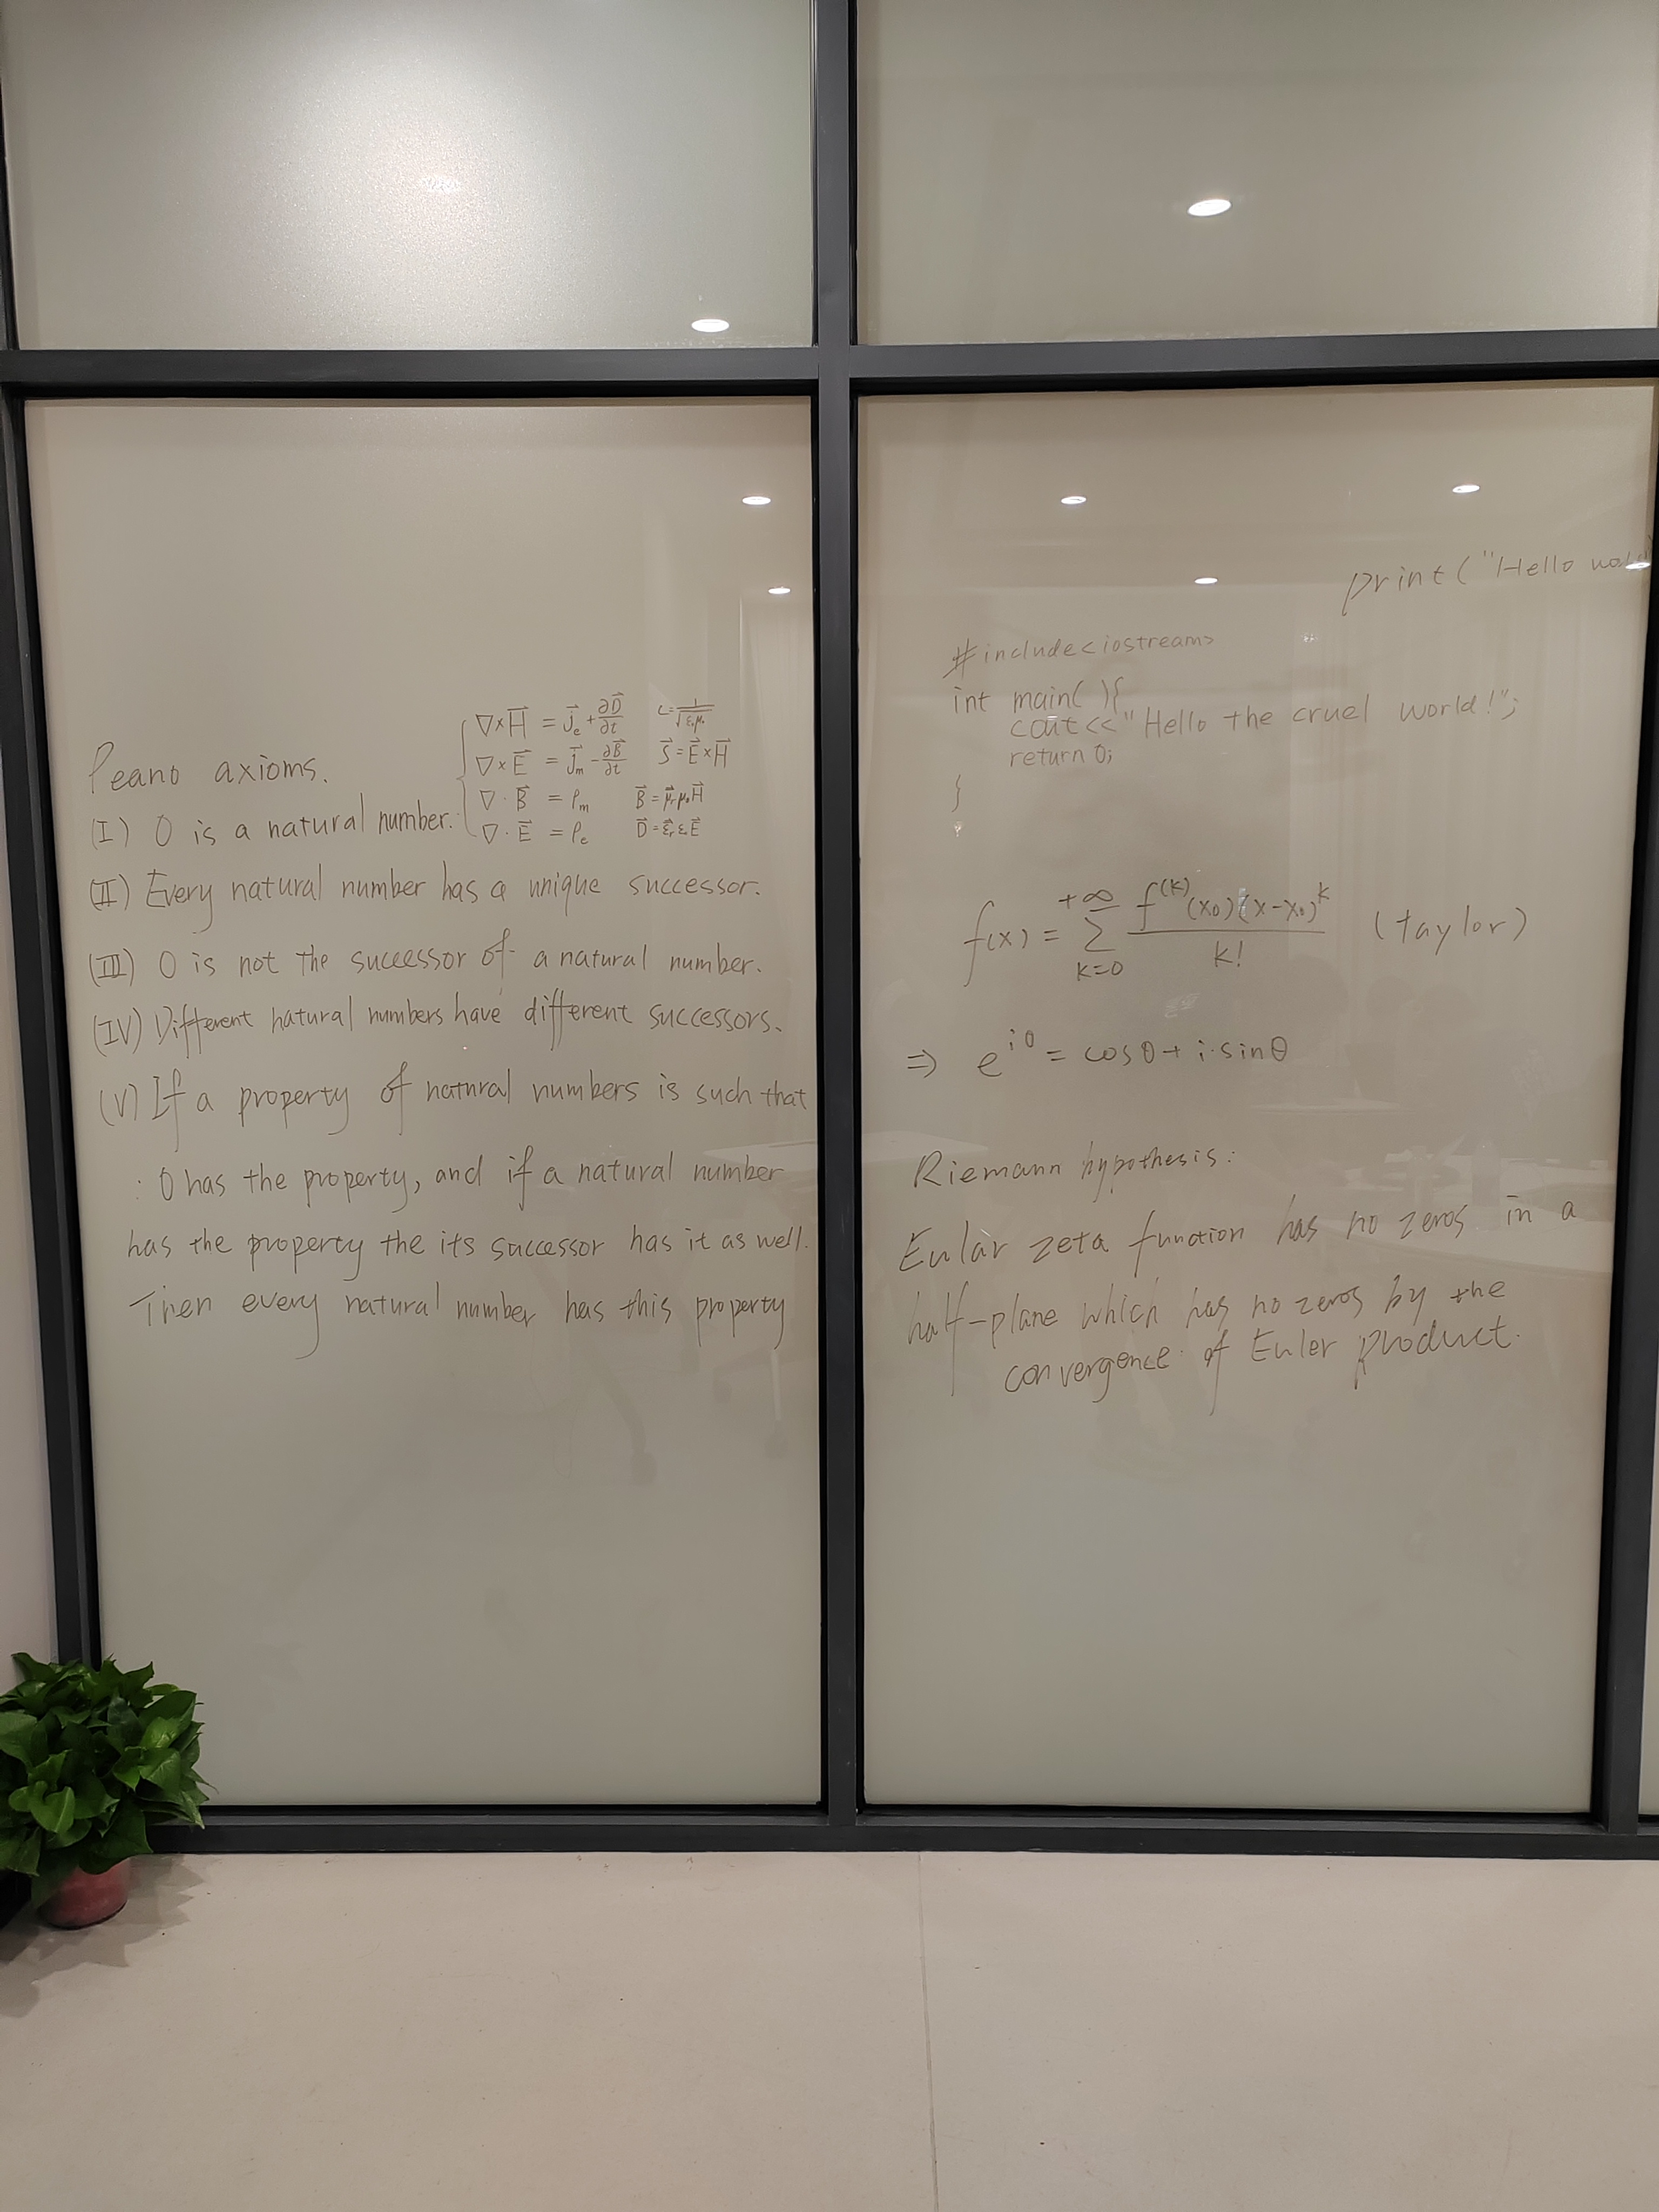 Peano axioms.
(I) 0 is a natural number.
(II) Every natural number has a unique successor.
(III) 0 is not the successor of a natural number.
(IV) Different natural numbers have different successors.
(V) If a property of natural numbers is such that
: 0 has the property, and if a natural number
has the property the its successor has it as well.
Then every natural number has this property
∇×H⃗ = j⃗ₑ + ∂D⃗/∂t c = 1/√(ε₀μ₀)
∇×E⃗ = j⃗ₘ - ∂B⃗/∂t S⃗ = E⃗×H⃗
∇·B⃗ = ρₘ B⃗ = μ⃗ᵣμ₀H⃗
∇·E⃗ = ρₑ D⃗ = ε⃗ᵣε₀E⃗
print("Hello wor
#include<iostream>
int main( ){
cout<<"Hello the cruel world!";
return 0;
}
f(x) = +∞ ∑ k=0 f^(k)(x₀)(x-x₀)^k / k! (taylor)
⇒ e^iθ = cosθ + i·sinθ
Riemann hypothesis:
Eular zeta function has no zeros in a
half-plane which has no zeros by the
convergence of Euler product.